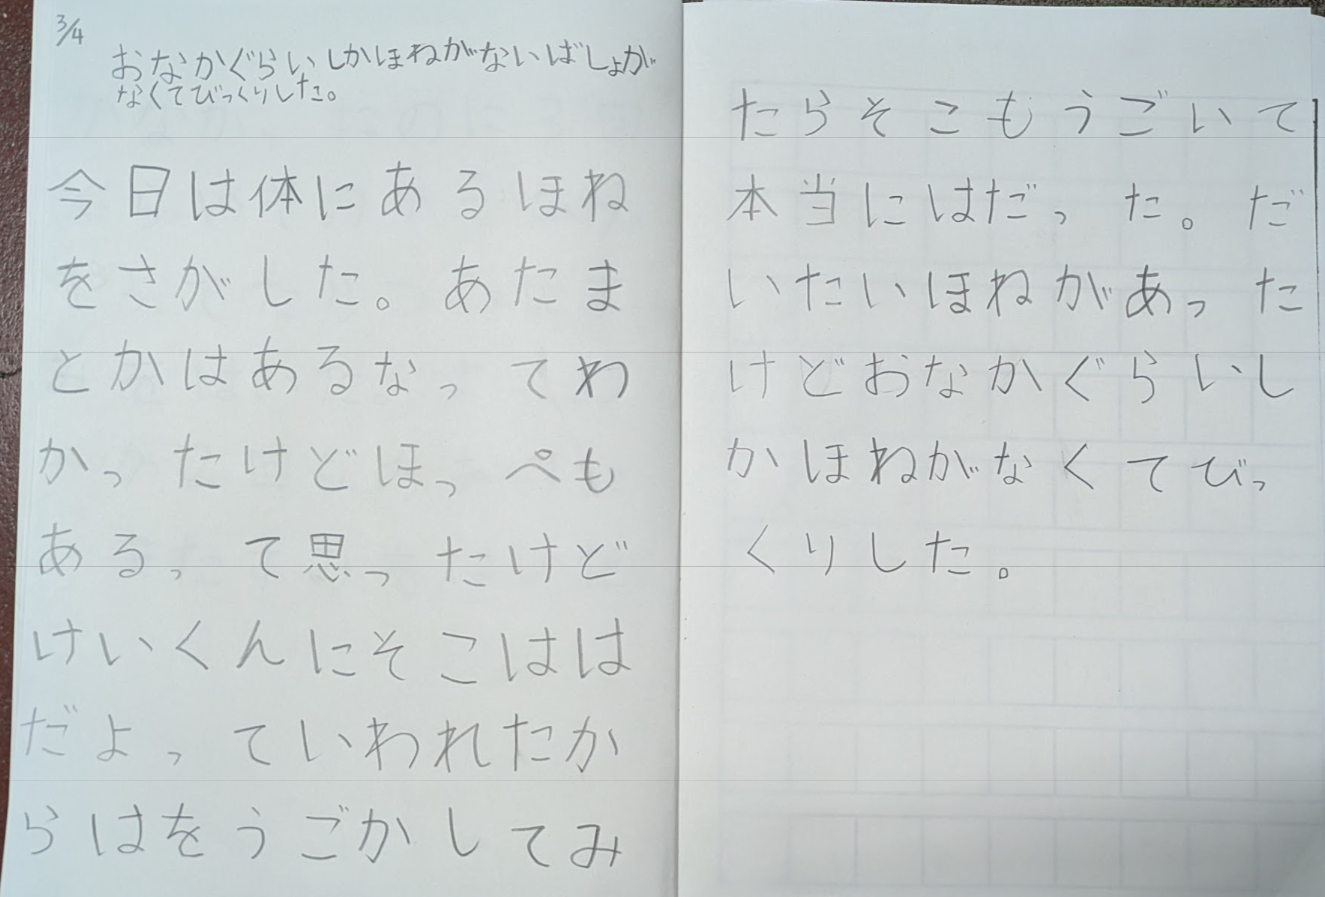 3/4
おなかぐらいしかほねがないばしょが
なくてびっくりした。
今日は体にあるほね
をさがした。あたま
とかはあるなってわ
かったけどほっぺも
あるって思ったけど
けいくんにそこはは
だよっていわれたか
らはをうごかしてみ
たらそこもうごいて
本当にはだった。だ
いたいほねがあった
けどおなかぐらいし
かほねがなくてびっ
くりした。